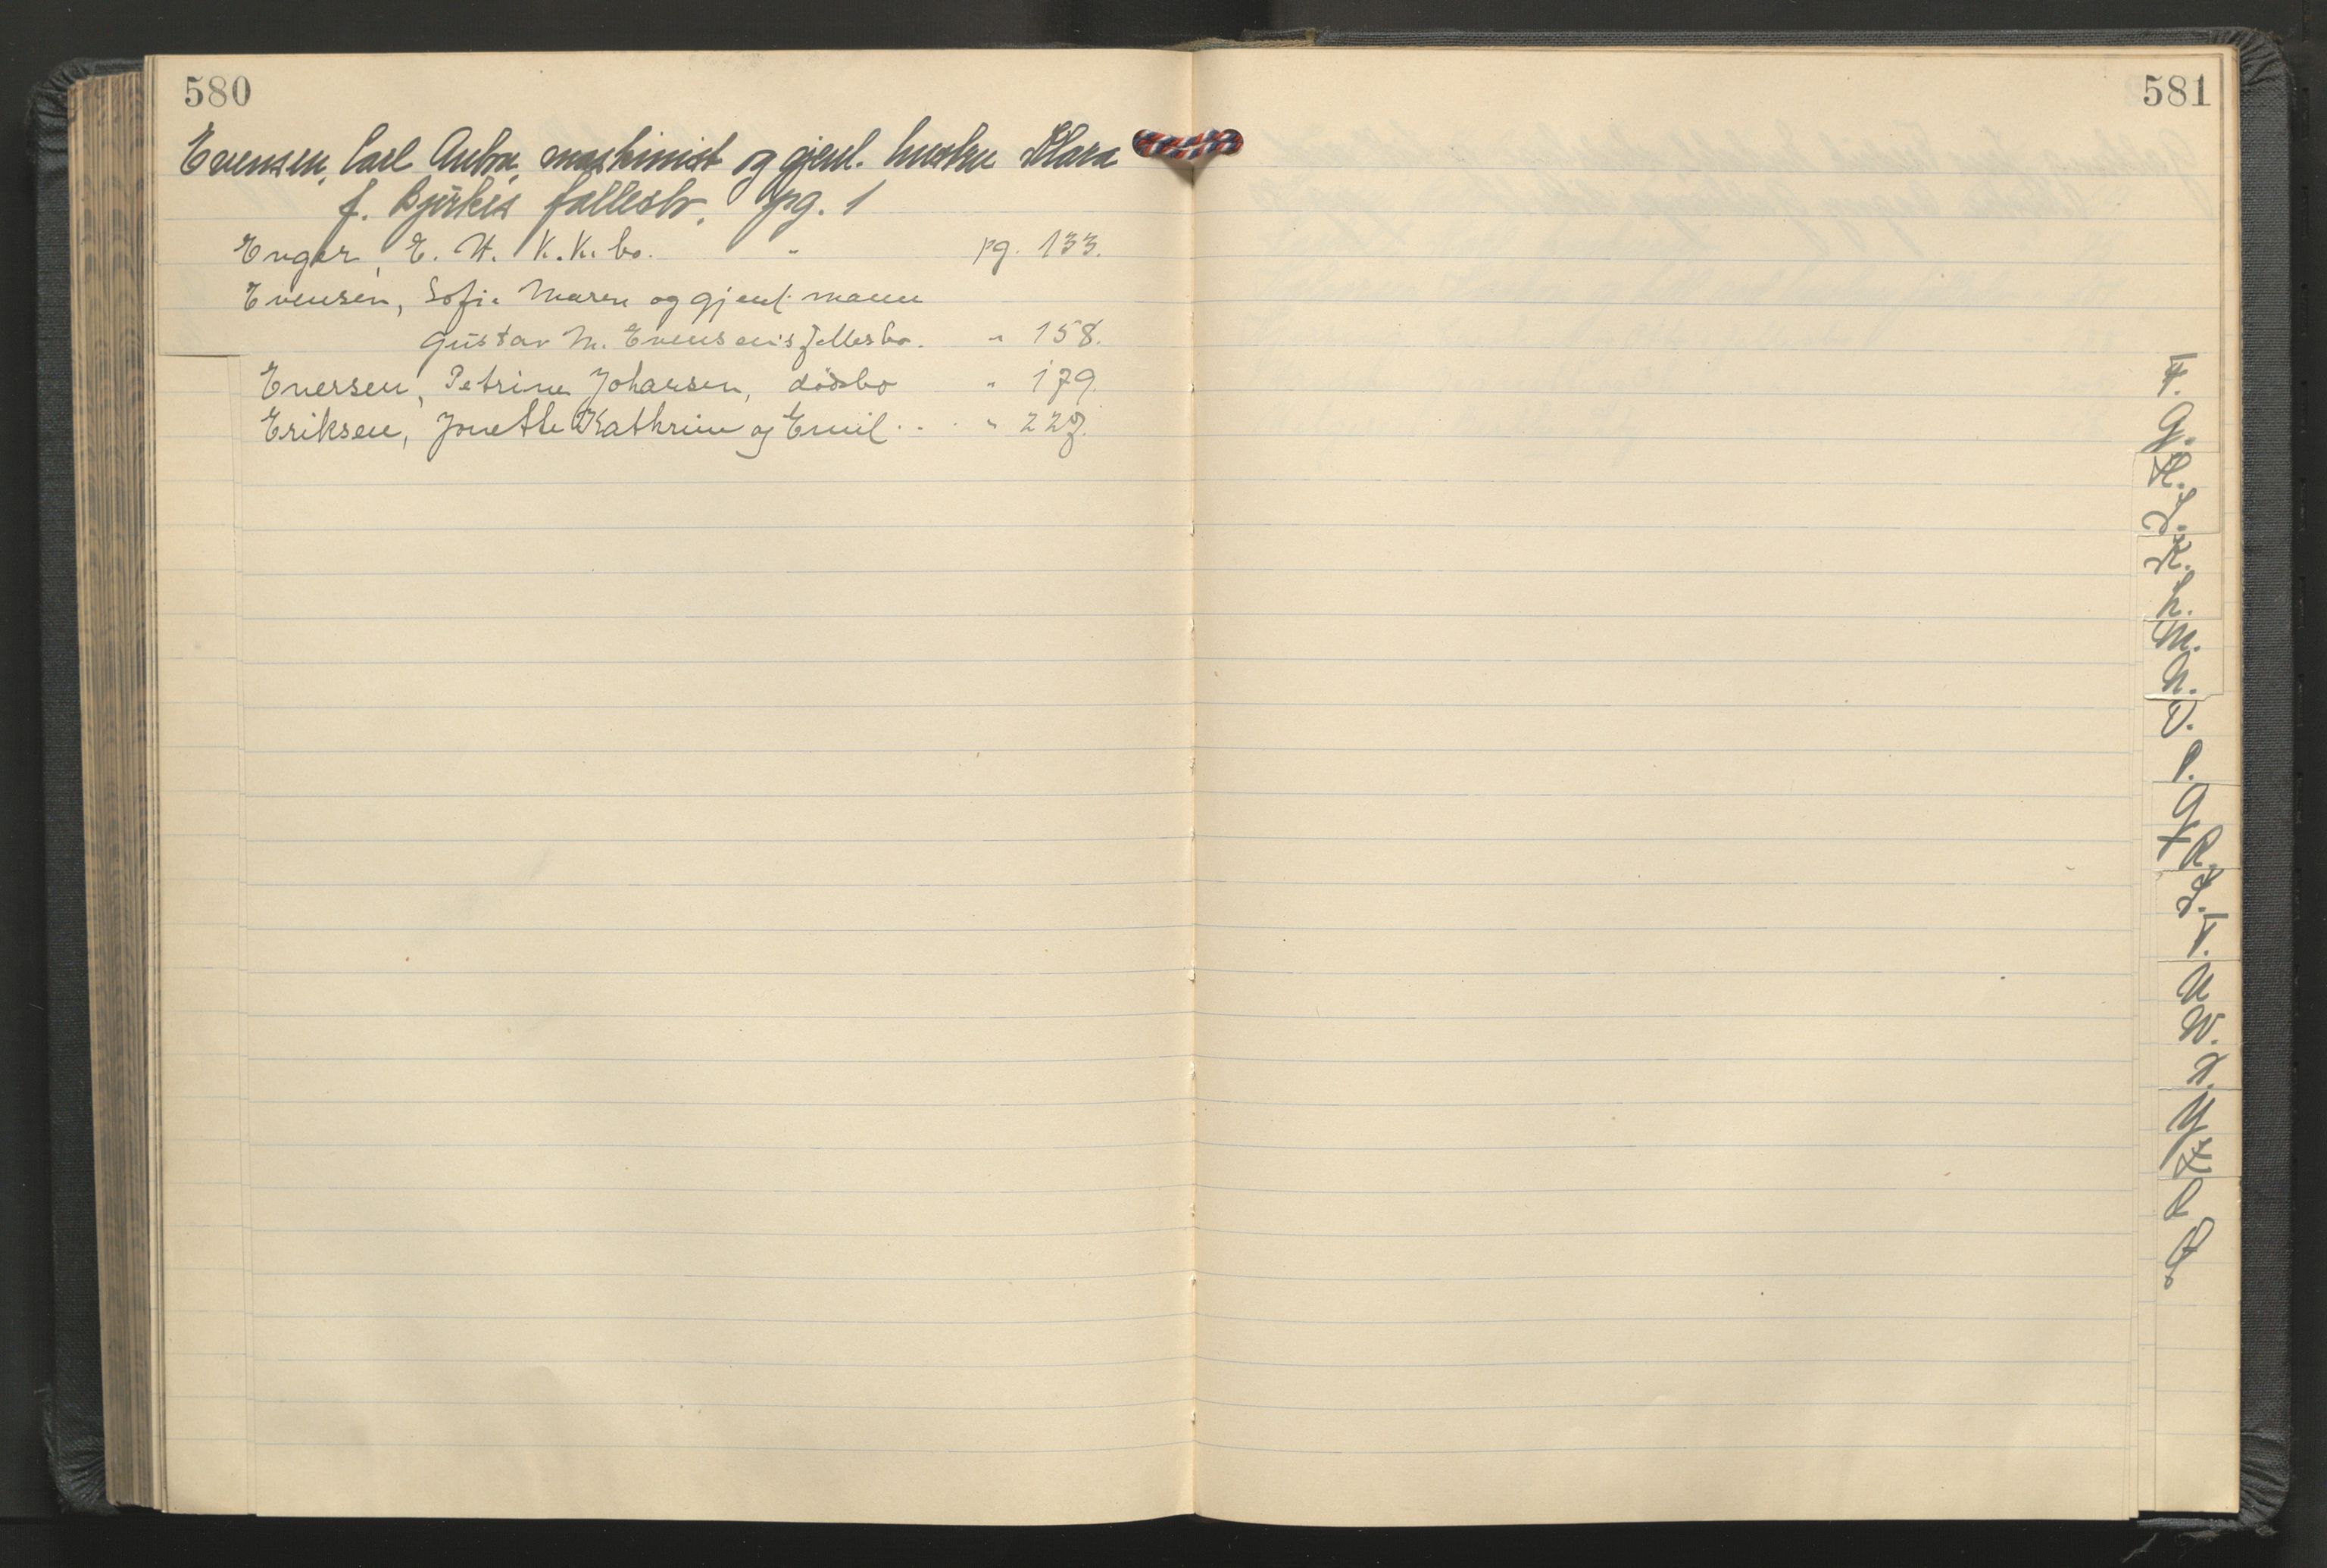 580
Evensen, Carl Anton, maskinist og gjenl. hustru Klara
f. Bjerkes fellesbo. pg. 1
Enger, E. W. K.K.bo. " pg. 133.
Evensen, Sofie Maren og gjenl. mann
Gustav M. Evensen's fellesbo. " 158.
Eversen, Petrine Johansen, dödsbo " 179.
Eriksen, Jonette Kathrine og Emil . . . " 227.
581
F.
G.
H.
I.
K.
L.
M.
N.
O.
P.
Q
R.
S.
T.
U
W.
X.
Y
Z